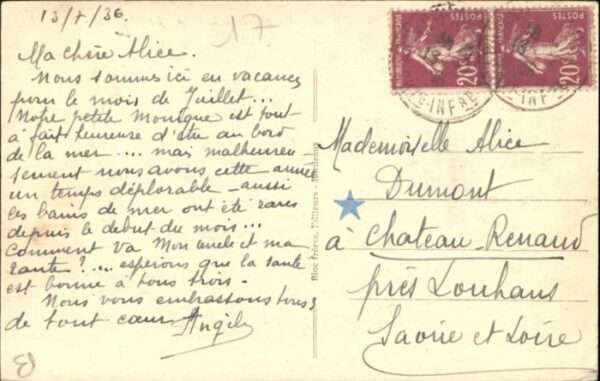 13/7/36.
17
Ma chère Alice.
Nous sommes ici en vacances
pour le mois de Juillet...
Notre petite Monique est tout
à fait heureuse d'être au bord
de la mer.... mais malheureu-
sement nous avons cette année
un temps déplorable - aussi
les bains de mer ont été rares
depuis le début du mois...
Comment va Mon oncle et ma
tante?... espérons que la santé
est bonne à tous trois.
Nous vous embrassons tous 3
de tout cœur Angèle
Mademoiselle Alice
Dumont
à Chateau Renaud
près Louhans
Saone et Loire
POSTES
20c
POSTES
20c